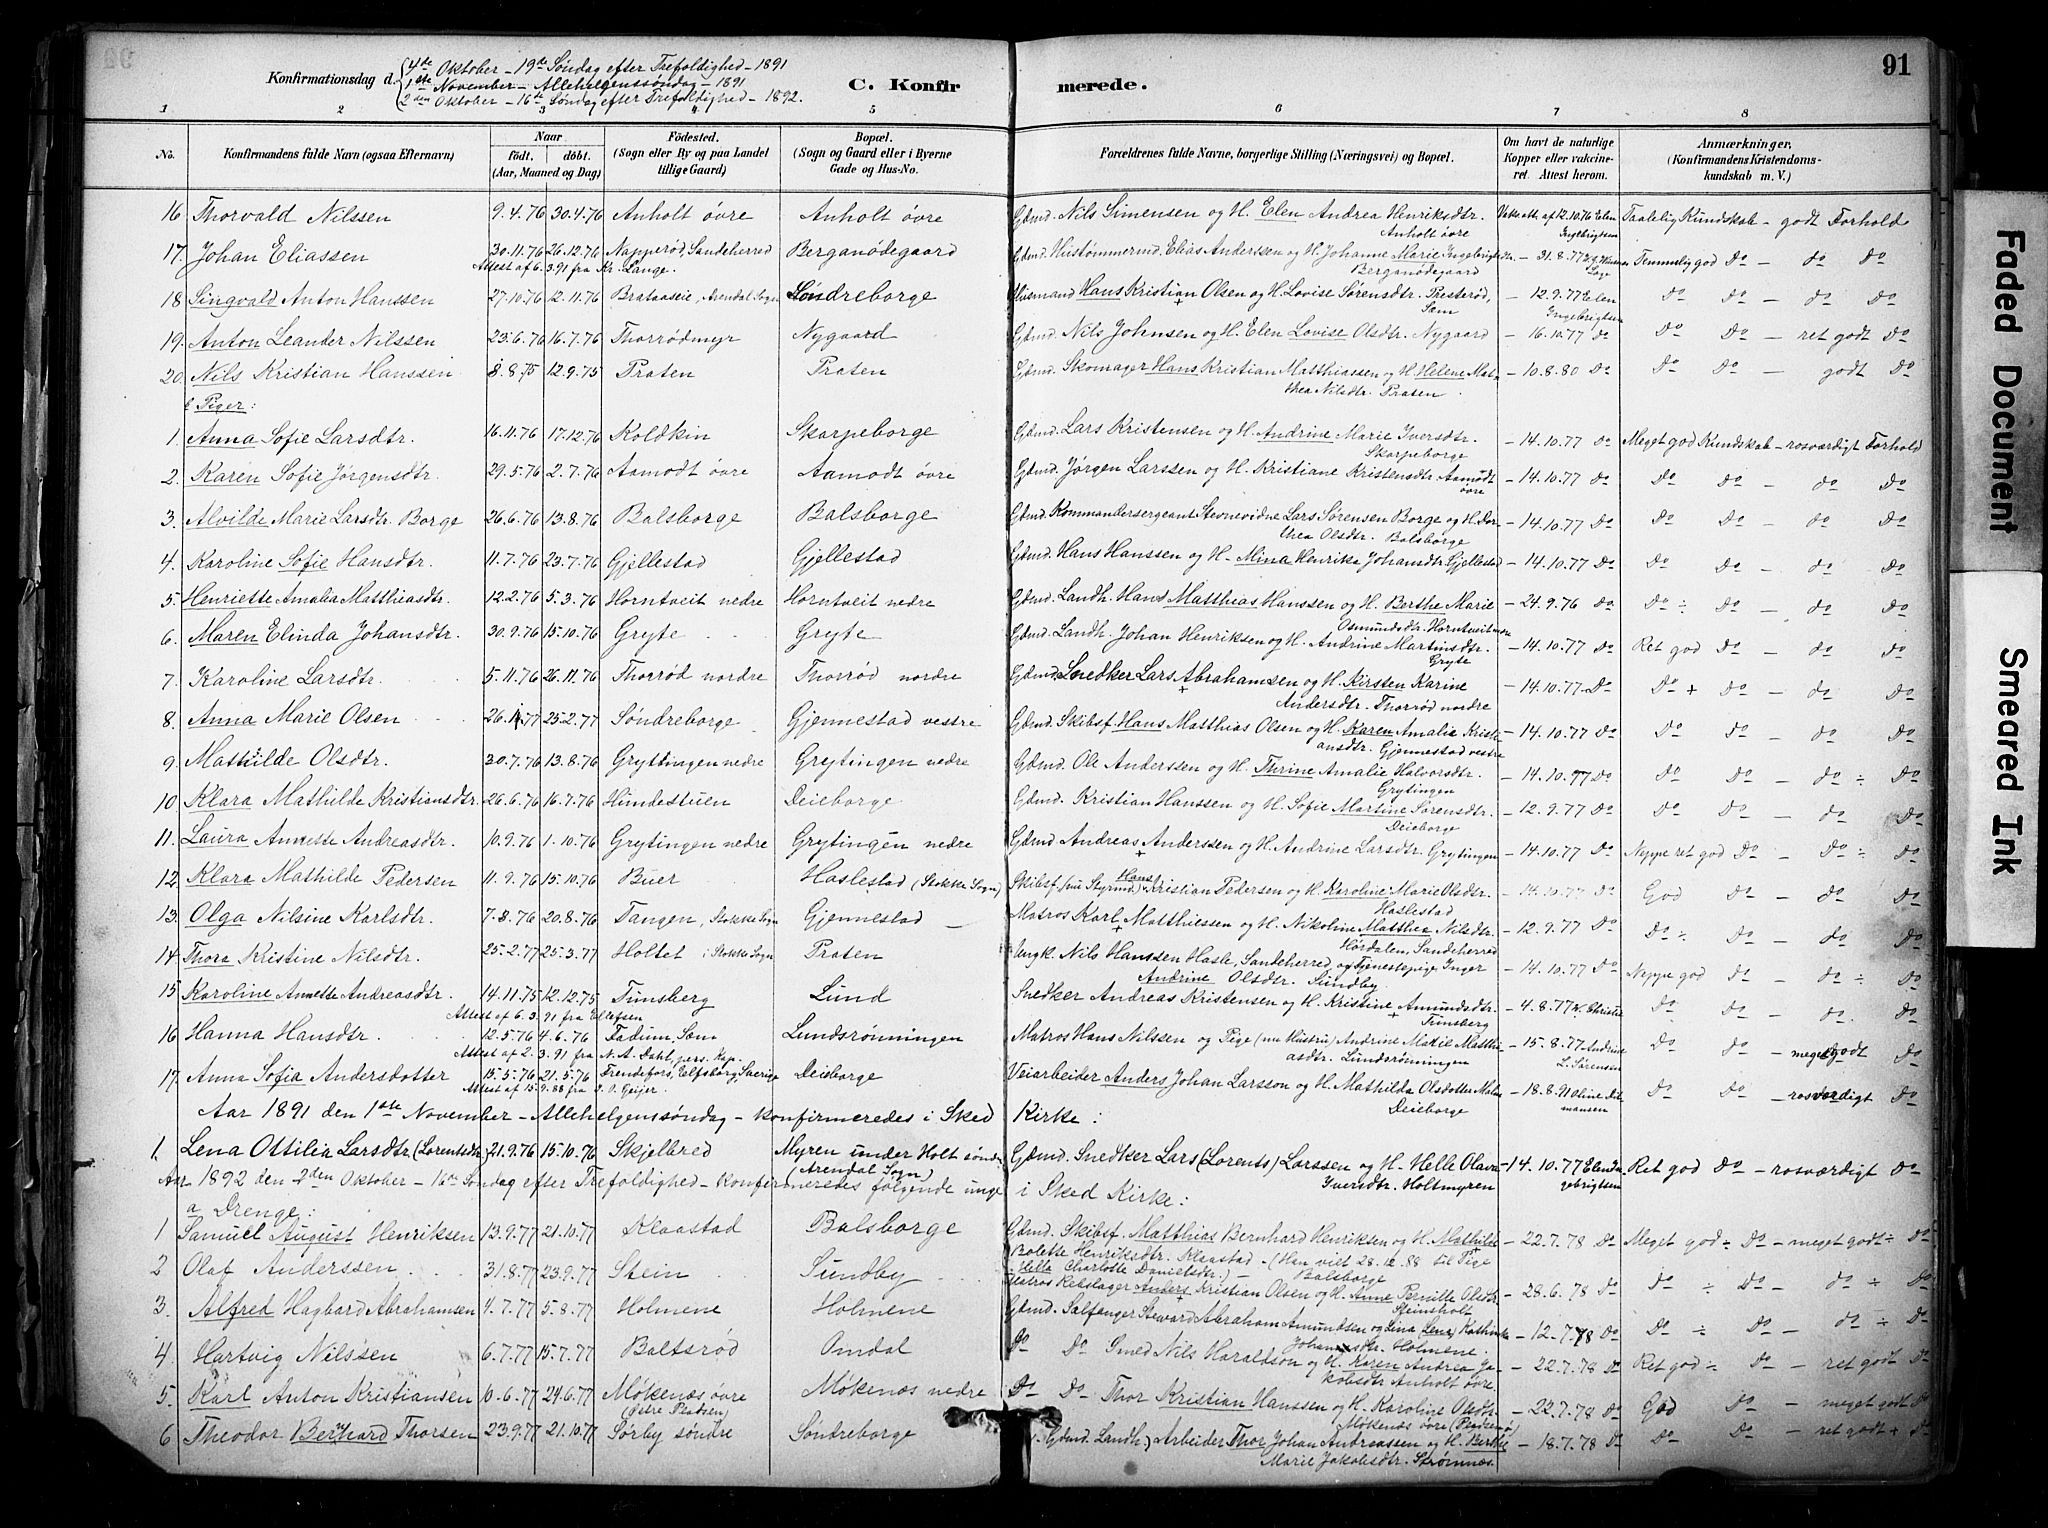 Konfirmationsdag d. 4de Oktober – 19de Søndag efter Trefoldighed – 1891
1ste November – Allehelgenssøndag – 1891
2den Oktober – 16de Søndag efter Trefoldighed – 1892.
C. Konfirmerede.
91
1 2 3 4 5 6 7 8
No. Konfirmandens fulde Navn (ogsaa Efternavn) Naar født. døbt. (Aar, Maaned og Dag) Födested. (Sogn eller By og paa Landet tillige Gaard) Bopæl. (Sogn og Gaard eller i Byerne Gade og Hus-No. Forældrenes fulde Navne, borgerlige Stilling (Næringsvei) og Bopæl. Om havt de naturlige Kopper eller vakcineret. Attest herom. Anmærkninger, (Konfirmandens Kristendomskundskab m. V.)
16 Thorvald Nilssen 9.4.76 30.4.76 Anholt øvre Anholt øvre Gdmd. Nils Simensen og H. Elen Andrea Henriksdtr. Anholt øvre Vakc. att. af 12.10.76 Elen Ingebrigtsen Taalelig Kundskab – godt Forhold
17. Johan Eliassen 30.11.76 26.12.76 Napperød, Sandeherred Berganødegaard Gdmd. Elias Anderssen og H. Johanne Marie Ingebrigtsdtr. Berganødegaard – 31.8.77 Temmelig god Do – do Do
Attest af 6.3.91 fra Kr. Lange.
18 Singvald Anton Hanssen 27.10.76 12.11.76 Brataaseie, Arendal Sogn Søndreborge Husmand Hans Kristian Olsen og H. Lovise Sørensdtr. Presterød, Sem – 12.9.77 Elen Ingebrigtsen Do Do – do Do
19. Anton Leander Nilssen 23.6.76 16.7.76 Thorrødmyr Nygaard Gdmd. Nils Johnsen og H. Elen Lovise Olsdtr. Nygaard – 16.10.77 Do Do Do – ret godt Do
20. Nils Kristian Hanssen 8.8.75 12.9.75 Praten Praten Gdmd. Skomager Hans Kristian Matthiassen og H. Helene Matthea Nilsdtr. Praten – 10.8.80 Do Do Do – godt Do
b Piger:
1. Anna Sofie Larsdtr. 16.11.76 17.12.76 Koldkin Skarpeborge Gdmd. Lars Kristensen og H. Andrine Marie Iversdtr. Skarpeborge – 14.10.77 Do Meget god Kundskab – rosværdigt Forhold
2. Karen Sofie Jørgensdtr. 29.5.76 2.7.76 Aamodt øvre Aamodt øvre Gdmd. Jørgen Larssen og H. Kristiane Kristensdtr. Aamodt øvre – 14.10.77 Do Do Do – do Do
3. Alvilde Marie Larsdtr. Borge 26.6.76 13.8.76 Balsborge Balsborge Gdmd. Kommandersergeant Stevnevidne Lars Sørensen Borge og H. Dorthea Olsdtr. Balsborge – 14.10.77 Do Do Do – do Do
4. Karoline Sofie Hansdtr. 11.7.76 23.7.76 Gjellestad Gjellestad Gdmd. Hans Hanssen og H. Mina Henrika Johansdtr. Gjellestad – 14.10.77 Do Do Do – do Do
5. Henriette Amalia Matthiasdtr. 12.2.76 5.3.76 Horntveit nedre Horntveit nedre Gdmd. Landh. Hans Matthias Hanssen og H. Berthe Marie Osmundsdtr. Horntveit – 24.9.76 Do Do ÷ Do – do Do
6. Maren Elinda Johansdtr. 30.9.76 15.10.76 Gryte Gryte Gdmd. Landh. Johan Henriksen og H. Andrine Martinsdtr. Gryte – 14.10.77 Do Ret god Do – do Do
7. Karoline Larsdtr. 5.11.76 26.11.76 Thorrød nordre Thorrød nordre Gdmd. Snedker Lars Abrahamsen og H. Kirsten Karine Andersdtr. Thorrød nordre – 14.10.77 Do Do + Do – do Do
8. Anna Marie Olsen 26.1.77 25.2.77 Søndreborge Gjennestad vestre Gdmd. Skibsf. Hans Matthias Olsen og H. Karen Amalie Kristiansdtr. Gjennestad vestre – 14.10.77 Do Do Do – do Do
9. Mathilde Olsdtr. 30.7.76 13.8.76 Gryttingen nedre Grytingen nedre Gdmd. Ole Anderssen og H. Thrine Amalie Halvorsdtr. Grytingen – 14.10.77 Do Do Do – do ÷ Do
10 Klara Mathilde Kristiansdtr. 26.6.76 16.7.76 Hundestuen Deieborge Gdmd. Kristian Hanssen og H. Sofie Martine Sørensdtr. Deieborge – 12.9.77 Do Do Do – do Do
11. Laura Annette Andreasdtr. 10.9.76 1.10.76 Grytingen nedre Grytingen nedre Gdmd. Andreas Anderssen og H. Andrine Larsdtr. Grytingen – 14.10.77 Do Neppe ret god Do – do ÷ Do
12. Klara Mathilde Pedersen 11.9.76 15.10.76 Buer Haslestad (Stokke Sogn) Skibsf. (nu Styrmd) Hans Kristian Pedersen og H. Karoline Marie Olsdtr. Haslestad – 14.10.77 Do God Do – do Do
13. Olga Nilsine Karlsdtr. 7.8.76 20.8.76 Tangen, Stokke Sogn Gjennestad Matros Karl Matthiessen og H. Nikoline Matthea Nilsdtr. Hørdalen, Sandeherred – 12.9.77 Do Do ÷ Do – do Do
14. Thora Kristine Nilsdtr. 25.2.77 25.3.77 Holtet i Stokke Sogn Praten Ungk. Nils Hanssen Hasle, Sandeherred, og Tjenestepige Inger Andrine Olsdtr. Sundby – 14.10.77 Do Neppe god Do – do ÷ Do
15 Karoline Annette Andreasdtr. 14.11.75 12.12.75 Tunsberg Lund Snedker Andreas Kristensen og H. Kristine Amundsdtr. Tunsberg – 4.8.77 Do Do – do Do
Attest af 6.3.91 fra Ellefsen
16 Hanna Hansdtr. 12.5.76 4.6.76 Fadum, Sem Lundsrønningen Matros Hans Nilssen og Pige (nu Hustru) Andrine Marie Matthiasdtr. Lundsrønningen – 15.8.77 Andrine L. Sørensen Do Do – meget godt Do
Attest af 2.3.91 fra N. A. Dahl, pers. Kap.
17. Anna Sofia Andersdotter 15.5.76 21.5.76 Trendefors, Elfsborg, Sverige Deieborge Veiarbeider Anders Johan Larsson og H. Mathilda Olsdotter Deieborge – 18.8.91 Do Do – rosværdigt Do
Attest af 15.9.88 fra Geijer.
Aar 1891 den 1ste November – Allehelgenssøndag – konfirmeredes i Sked Kirke:
1. Lena Ottilia Larsdtr. (Lorentsdtr.) 21.9.76 15.10.76 Skjelbred Myren under Holt søndre (Arendal Sogn) Gdmd. Snedker Lars (Lorents) Larssen og H. Helle Olava Iversdtr. Holtmyren – 14.10.77 Elen Ingebrigtsen Ret god Do – rosværdigt Do
Aar 1892 den 2den Oktober – 16de Søndag efter Trefoldighed – konfirmeredes følgende unge i Sked Kirke:
a Drenge:
1 Samuel August Henriksen 13.9.77 21.10.77 Klaastad Balsborge Gdmd. Skibsf. Matthias Bernhard Henriksen og H. Mathilde Bolette Henriksdtr. Klaastad – (Han viet 28.12.88 til Pige Helle Charlotte Danielsdtr.) – Balsborge – 22.7.78 Do Meget god ÷ Do – meget godt ÷ Do
2 Olaf Anderssen 31.8.77 23.9.77 Stein Sundby Matros Rebslager Anders Kristian Olsen og H. Anne Pernille Olsdtr. Steinsholt – 28.6.78 Do Do ÷ Do – do ÷ Do
3. Alfred Hagbard Abrahamsen 4.7.77 5.8.77 Holmene Holmene Gdmd. Sælfanger Steward Abraham Amundsen og Lina (Lena) Kathinka Johansdtr. Holmene – 12.7.78 Do Do ÷ Do – do ÷ Do
4 Hartvig Nilssen 6.7.77 15.7.77 Baltsrød Omdal Do Do Smed Nils Haraldson og H. Karen Andrea Jakobsdtr. Anholt øvre – 22.7.78 Do Ret god ÷ Do – ret godt Do
5. Karl Anton Kristiansen 10.6.77 24.6.77 Møkenæs øvre Møkenæs nedre Do Do Thor Kristian Hanssen og H. Karoline Olsdtr. Møkenæs øvre – 22.7.78 Do God Do – meget godt Do
6 Theodor Bernhard Thorsen 23.9.77 21.10.77 Sørby søndre Søndreborge (Gdmd. Landh.) Arbeider Thor Johan Andreassen og H. Berthe Marie Jakobsdtr. Strømnæs. – 18.7.78 Do Do Do – ret godt + Do
Faded Document
Smeared Ink